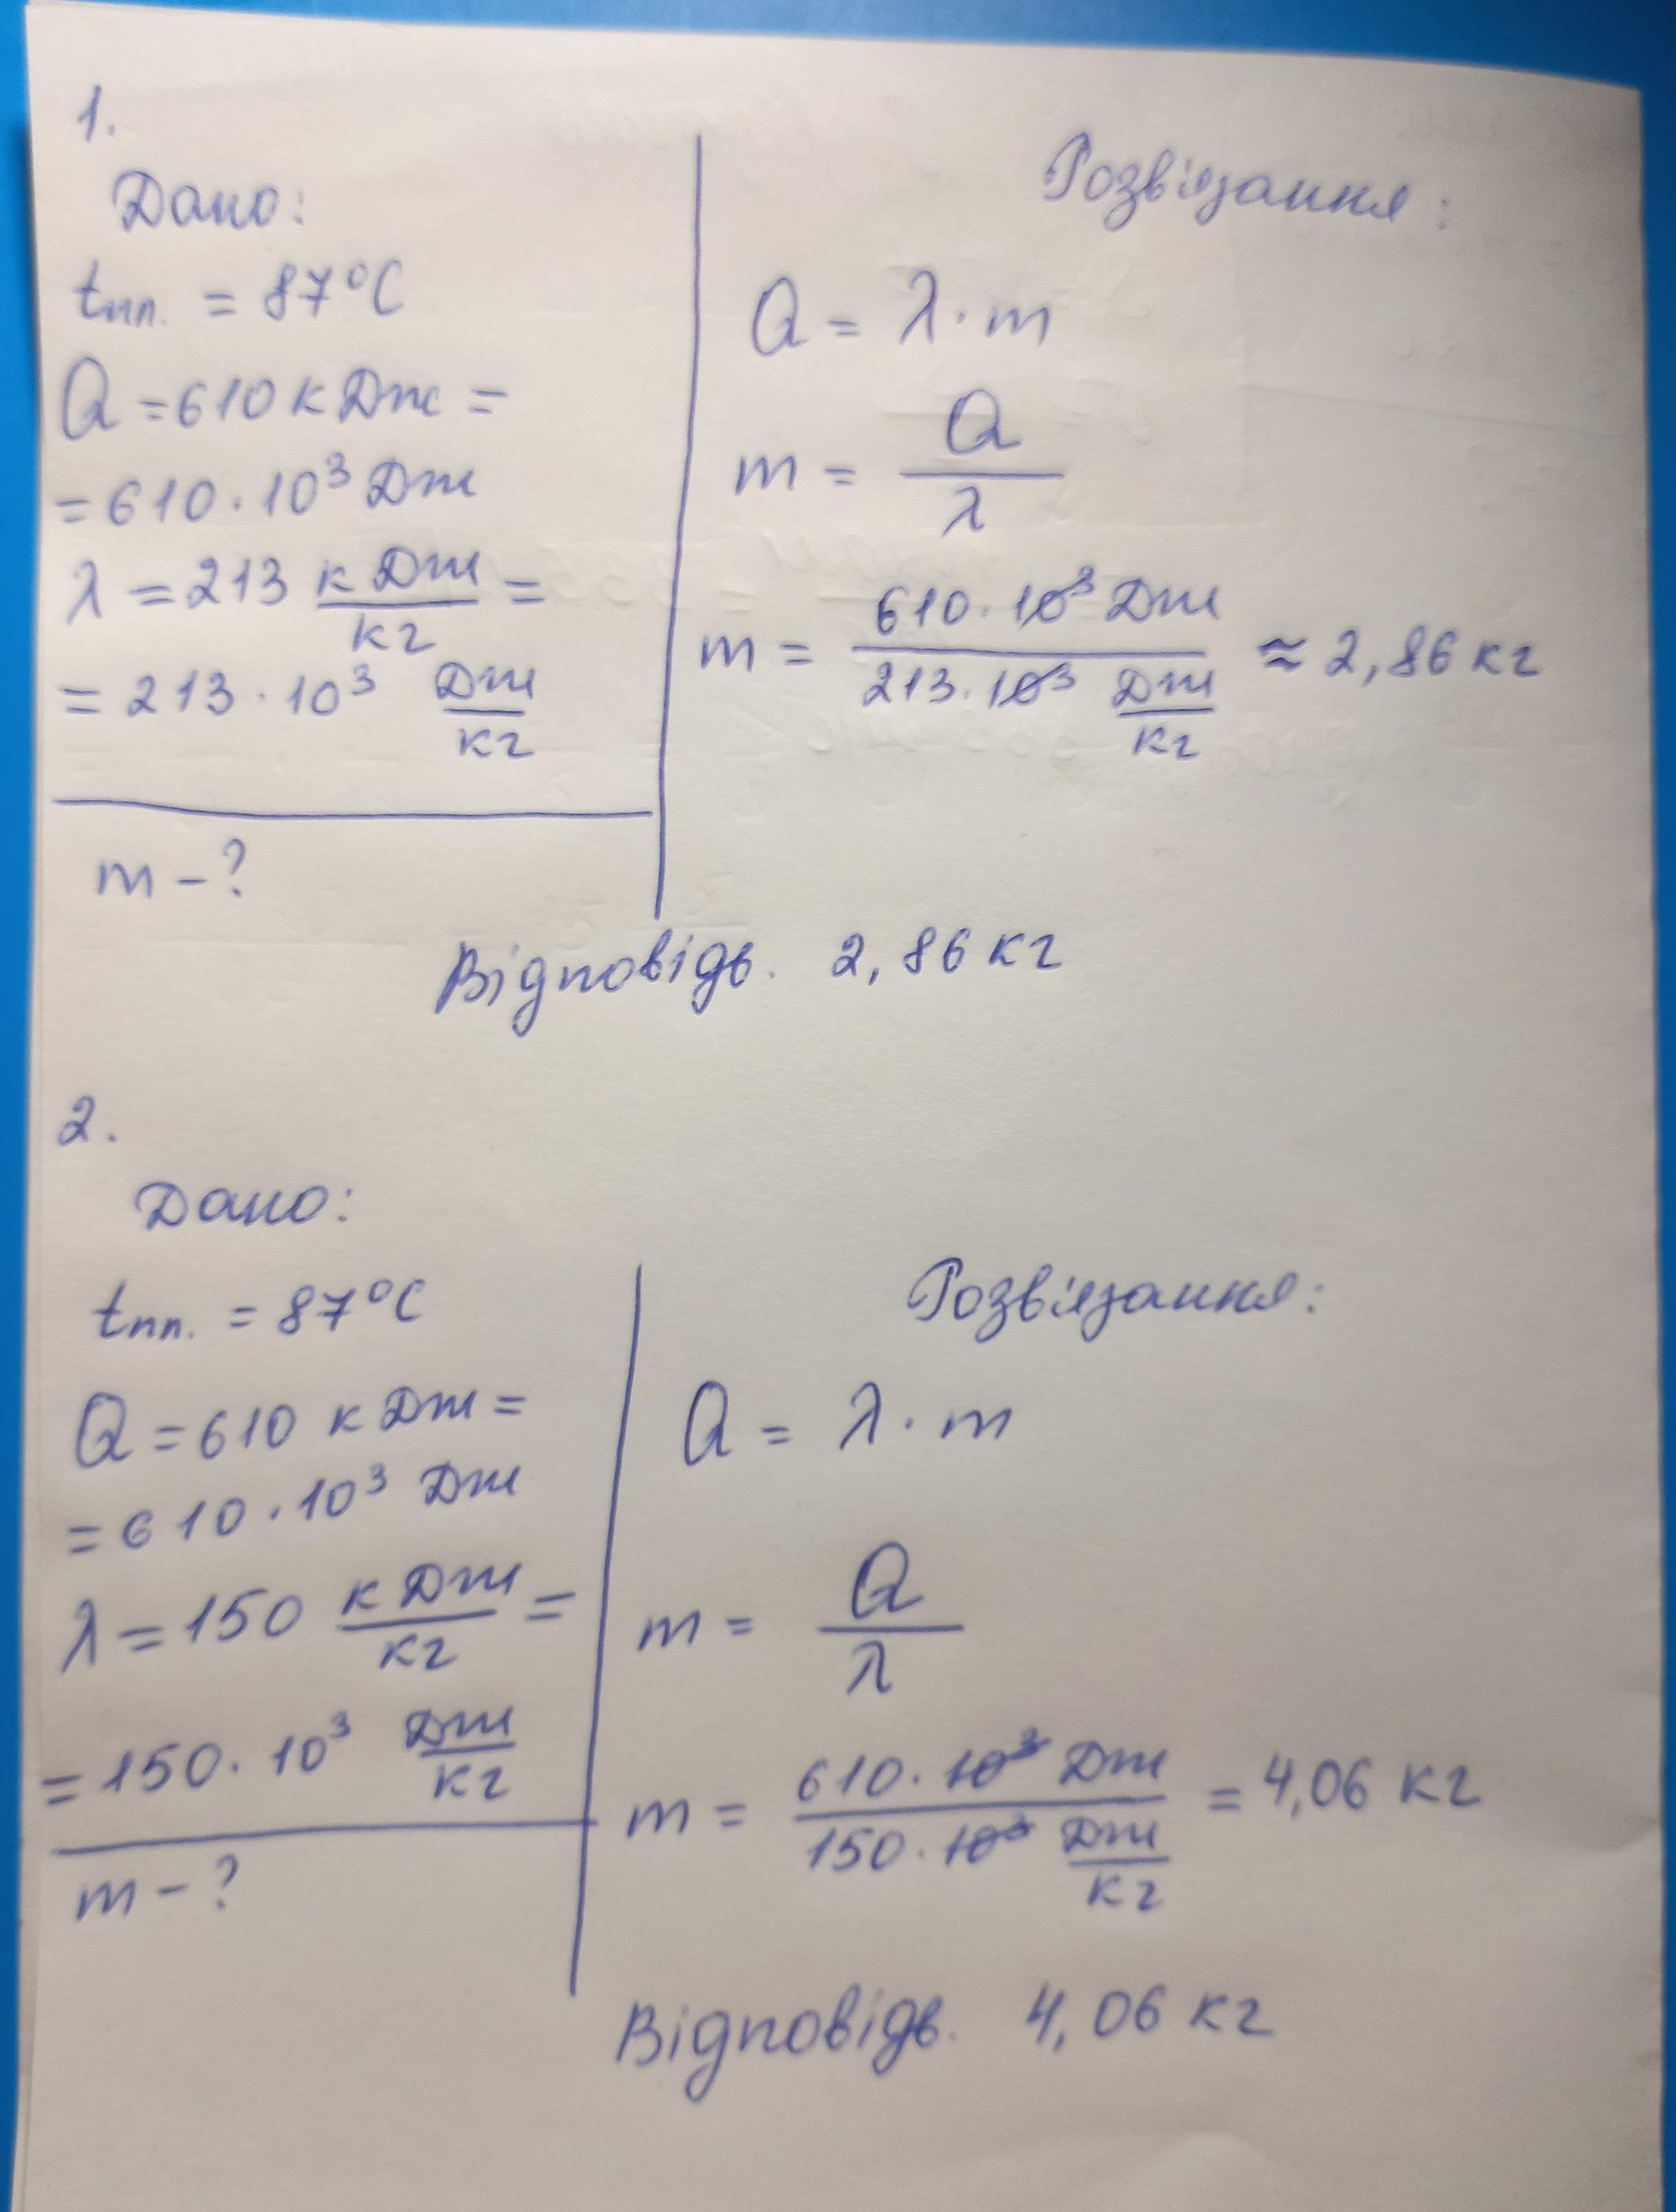 1.
Дано:
tпл. = 87°C
Q = 610 кДж =
= 610 · 10³ Дж
λ = 213 кДж/кг =
= 213 · 10³ Дж/кг
m - ?
Розв'язання:
Q = λ · m
m = Q/λ
m = 610 · 10³ Дж / 213 · 10³ Дж/кг ≈ 2,86 кг
Відповідь. 2,86 кг
2.
Дано:
tпл. = 87°C
Q = 610 кДж =
= 610 · 10³ Дж
λ = 150 кДж/кг =
= 150 · 10³ Дж/кг
m - ?
Розв'язання:
Q = λ · m
m = Q/λ
m = 610 · 10³ Дж / 150 · 10³ Дж/кг = 4,06 кг
Відповідь. 4,06 кг